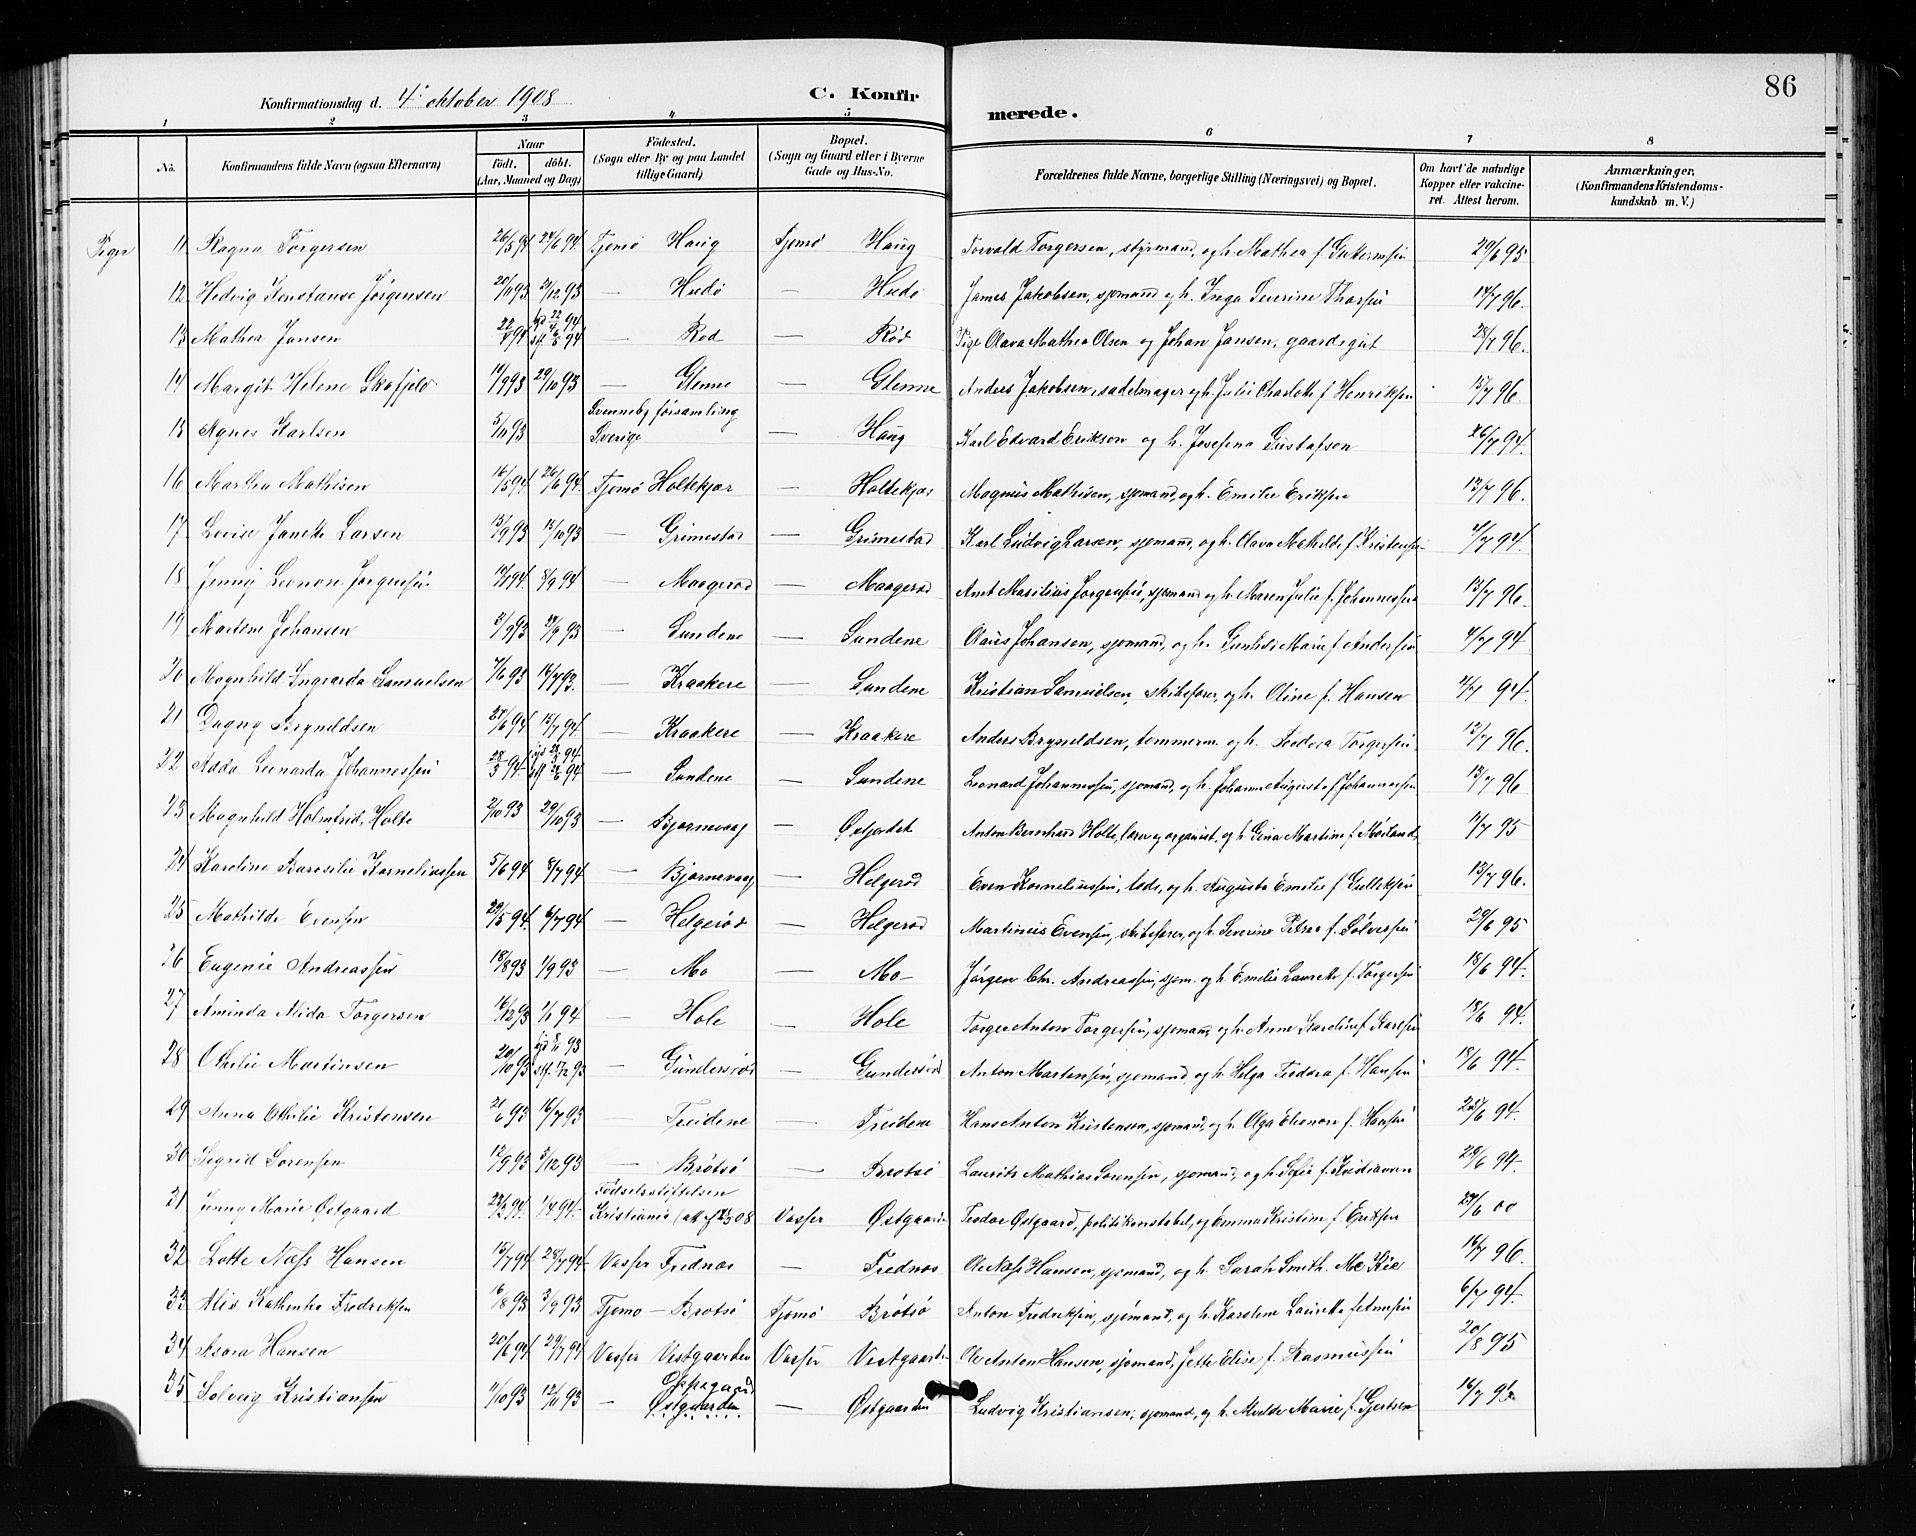 86
Konfirmationsdag d. 4' oktober 1908
C. Konfirmerede.
1 2 3 4 5 6 7 8
No. Konfirmandens fulde Navn (ogsaa Efternavn) Naar født. døbt. (Aar, Maaned og Dag) Fødested. (Sogn eller By og paa Landet tillige Gaard) Bopæl. (Sogn og Gaard eller i Byerne Gade og Hus-No.) Forældrenes fulde Navne, borgerlige Stilling (Næringsvei) og Bopæl. Om havt de naturlige Kopper eller vakcineret. Attest herom. Anmærkninger. (Konfirmandens Kristendomskundskab m. V.)
Piger 11 Ragna Torgersen 26/5 94 24/6 94 Tjømø Haug Tjømø Haug Torvald Torgersen, styrmand, og h. Mathea f. Guttormsen 29/6 95
12 Hedvig Konstanse Jørgensen 20/11 93 31/12 93 — Hudø — Hudø James Jakobsen, sjømand og h. Inga Severine Thorsen 14/7 96.
13 Mathea Jansen 22/4 94 — Rød — Rød Pige Olava Mathea Olsen og Johan Jansen, gaardsgut 28/7 96.
14 Margit Helene Skafjelo 14/9 93 29/10 93 — Glenne — Glenne Anders Jakobsen, sadelmager og h. Julie Charlotte f. Henriksen 13/7 96
15 Agnes Karlsen 5/11 93 Svenneby församling Sverige — Haug Karl Edvard Erikson og h. Josefina Gustafson 26/7 94.
16 Martha Mathisen 16/5 94 26/6 94. Tjømø Holtekjær — Holtekjær Magnus Mathisen, sjømand, og h. Emilie Eriksen 13/7 96.
17 Lovise Janette Larsen 13/9 93 15/10 93 — Grimestad — Grimestad Karl Ludvig Larsen, sjømand, og h. Olava Mathilde f. Kristensen 4/7 94.
18 Jenny Leonore Jørgensen 8/9 94 — Maagerød — Maagerød Amt Marilius Jørgensen, sjømand og h. Maren Julie f. Johannessen 13/7 96.
19 Martine Johansen 3/9 93 24/9 93 — Sundene — Sundene Olaus Johansen, sjømand, og h. Gunhild Marie f. Andersen 4/7 94
20 Magnhild Ingvarda Samuelsen 7/6 93 16/7 93. — Kraakere — Sundene Kristian Samuelsen, skibsfører, og h. Oline f. Hansen 4/7 94.
21 Dagny Brynildsen 27/6 94 15/7 94. — Kraakere — Kraakere Anders Brynildsen, tømmerm. og h. Teodora Torgersen 13/7 96.
22 Adda Leonarda Johannessen 28/3 94 — Sundene — Sundene Leonard Johannessen, sjømand, og h. Johanne Auguste f. Johannessen 13/7 96
23 Magnhild Holmfrid Holte 2/10 93 29/10 93 — Bjørnevaag — Østjordet Anton Bernhard Holte, lærer og organist, og h. Gina Martine f. Mørland 1/7 95
24 Karoline Barosilie Korneliussen 5/6 94 8/7 94 — Bjørnevaag — Helgerød Even Korneliussen, lods, og h. Augusta Emilie f. Gulleksen 13/7 96.
25 Mathilde Evensen 29/5 94. 6/7 94 — Helgerød — Helgerød Martinius Evensen, skibsfører, og h. Severine Petrea f. Sølvesen 29/6 95
26 Eugenie Andreassen 18/8 93 1/9 93 — Mo — Mo Jørgen Chr. Andreassen, sjøm. og h. Emelie Laurette f. Torgersen 18/6 94.
27 Aminda Alida Torgersen 16/12 93 1/1 94 — Hole — Hole Torger Anton Torgersen, sjømand, og h. Anne Karoline f. Karlsen 18/6 94.
28 Othilie Martinsen 20/10 93 — Gundersrød — Gundersrød Anton Martinsen, sjømand, og h. Helga Teodora f. Hansen 18/6 94.
29 Anna Othilie Kristensen 21/6 93 16/7 93 — Treidene — Treidene Hans Anton Kristensen, sjømand, og h. Olga Eleonore f. Hansen 25/6 94.
30 Sigrid Sørensen 12/9 93 3/12 93 — Brøtsø — Brøtsø Laurits Mathias Sørensen, sjømand, og h. Sofie f. Kristiansen 29/6 94.
31 Jenny Marie Østgaard 23/2 94. 1/4 94. Fødselsstiftelsen Kristiania Vasser Østgaarden Teodor Østgaard, politikonstabel, og Emma Kristine f. Eriksen 27/6 00
32 Lotte Næss Hansen 15/7 94 28/7 94 Vasser Frednæs — Frednæs Ole Næss Hansen, sjømand, og h. Sarah Smith Mc Kie 16/7 96.
33 Alis Kathinka Fredriksen 16/8 93 3/9 93 Tjømø — Brøtsø Tjømø Brøtsø Anton Fredriksen, sjømand, og h. Karolene Laurette f. Arnesen 6/7 94.
34 Asora Hansen 20/6 94 29/7 94 Vasser Vestgaarden Vasser Vestgaarden Ole Anton Hansen, sjømand, Jette Elise f. Rasmussen 20/8 95
35 Solveig Kristiansen 11/10 93 12/11 93 — Oppegaard Østgaarden — Østgaarden Ludvig Kristiansen, sjømand, og h. Marie f. Gjertsen 16/7 96